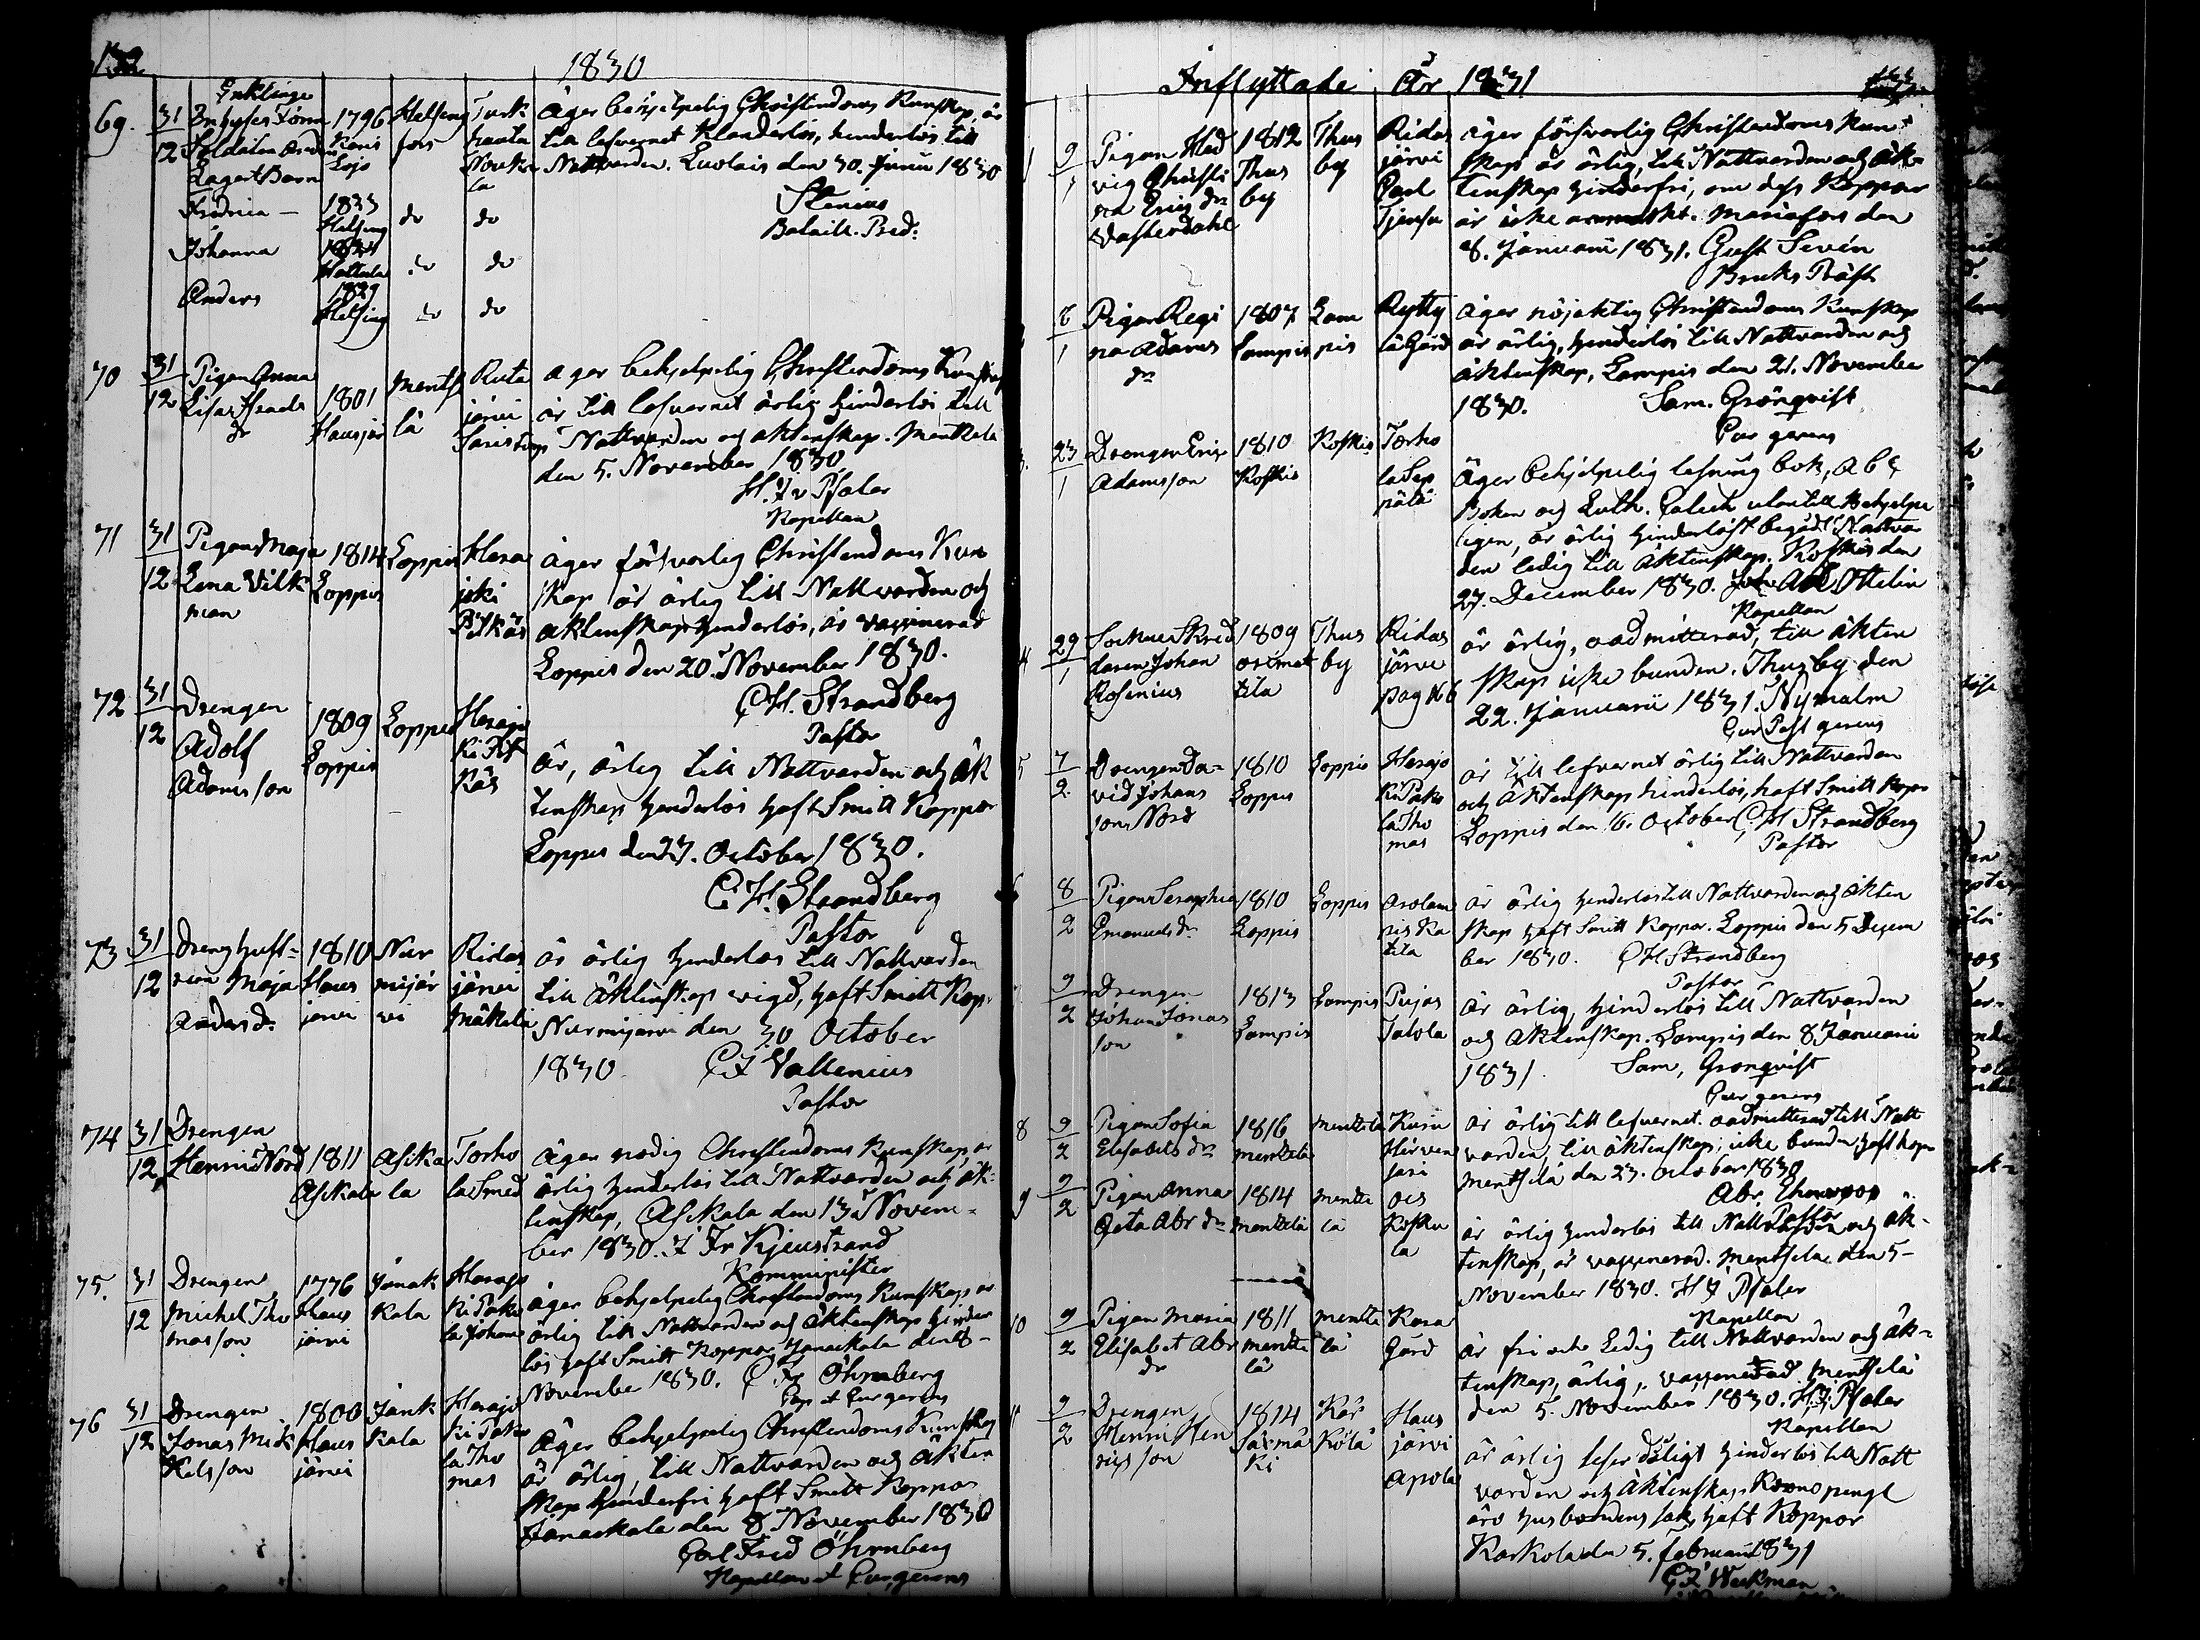 132
1830
69.
31
12
Enklinge
Inhyses
Soldaten
Lagert Barn
1796
Karis
Lojo
Helsing
fors
Turk
hauta
Äger behjelpelig Christendoms Kunskap, är
till lefvernet Klanderlös, hinderlös till
Nattvarden. Luolais den 30. Junii 1830
Stenius
Bataill. Pred:
Fredrica —
Helsing
do
do
Johanna
do
do
Anders
1829
Helsing
do
do
70
31
12
Pigan Anna
Lisa Isracls
dr
1801
Hausjär
Mentse
lä
Ruta
järvi
äger behjelpelig Christendoms Kunskap
är till lefvernet ärlig hinderlös till
Nattvarden och äktenskap. Mentzelä
den 5. November 1830
H. J v Pfaler
Kapellan
71
31
12
Pigan Maja
Lena Vilk
man
1814
Loppis
Loppis
Hera
joki
Pilkäs
äger försvarlig Christendoms Kun
skap är ärlig till Nattvarden och
äktenskap hinderlös, är vaccinerad
Loppis den 20. November 1830.
C H. Strandberg
Pastor
72
31
12
Drengen
Adolf
Adamsson
1809
Loppis
Loppis
Herajo
ki Pil
käs
är, ärlig till Nattvarden och äk
tenskap hinderlös haft Smitt Koppor
Loppis den 27. October 1830.
C H. Strandberg
Pastor
73
31
12
Dreng hust=
run Maja
Anders dr
1810
Haus
järvi
Nur
mijär
vi
Ridas
järvi
Mäkelä
är ärlig hinderlös till Nattvarden
till Äktenskap vigd, haft Smitt Kop.
Nurmijärvi den 30 October
1830 C J Vallenius
Pastor
74
31
12
Drengen
Henric Nord
1811
Asikala
Asika
la
Torho
la Smed
äger nödig Christendoms Kunskap, är
ärlig hinderlös till Nattvarden och äk:
tenskap, Asikala den 13. Novem=
ber 1830. J Fr Kjeustrand
Komminister
75.
31
12
Drengen
Michel Tho
masson
1776
Haus
järvi
Janak
kala
Herajo
ki Pako
la Johans
äger behjelpelig Christendoms Kunskap är
ärlig till Nattvarden och Äktenskap hinder
lös haft Smitt Koppor Janackala den 8 —
November 1830. C Fr Öhrnberg
Cap et Cur gerens
76
31
12
Drengen
Jonas Mick
kelsson
1800
Haus
järvi
Jank
kala
Herajo
ki Pako
la Tho
mas
Äger behjelpelig Christendoms Kunskap
är ärlig, till Nattvarden och Äkten
skap hinderfri haft Smitt Koppor
Janackala den 8. November 1830
Carl Fred Öhrnberg
Kapellan et Cur gerens
Inflyttade År 1831
1
9
1
Pigan Hed
vig Christi
na Eric dr
Vasterdahl
1812
Thus
by
Thus
by
Ridas
järvi
äger försvarlig Christendoms Kun
skap är ärlig, till Nattvarden och äk=
tenskap hinderfri, om dess Koppor
är icke anmärkt. Mariafors den
8. Januarii 1831. Gust Sevén
Bruks Präst
8
1
Pigan Regi
na Adams
dr
1807
Lampis
Lam
pis
Rytty
lä Gård
äger nöjaktig Christendoms Kunskap
är ärlig, hinderlös till Nattvarden och
äktenskap, Lampis den 21. November
1830. Sam. Grönqvist
Cur gerens
3.
23
1
Drengen Eric
Adamsson
1810
Koskis
Koskis
Torho
la Sep
pälä
äger behjelpelig lesning bok, A b c
Boken och Luth. Catech utantill behjelpe
ligen, är ärlig hinderlöst begått Nattvar
den ledig till Äktenskap. Koskis den
27. December 1830. Ottelin
Kapellan
4
29
1
Sockne Skred
daren Johan
Rosenius
1809
orimat
tila
Thus
by
Ridas
järvi
pag 166
är ärlig, oadmitterad, till äkten
skap icke bunden. Thusby den
22. Januarii 1831. Nymalm
Cur Past gerens
5
7
2
Drengen Da=
vid Johans
son Nord
1810
Loppis
Loppis
Herajo
ki Pako
la Tho
mas
är till lefvernet ärlig till Nattvarden
och Äktenskap hinderlös, haft Smitt Kopor
Loppis den 16. October C H Strandberg
Pastor
6
8
2
Pigan Seraphia
Emanuels dr
1810
Loppis
Loppis
Arolam
pis Ka
tila
är ärlig hinderlös till Nattvarden och äkten
skap haft Smitt Koppor. Loppis den 5 Decem
ber 1830. C H Strandberg
Pastor
9
2
Drengen
Johan Jonas
son
1813
Lampis
Lampis
Pujas
Talola
är ärlig, hinderlös till Nattvarden
och Äktenskap. Lampis den 8 Januarii
1831. Sam, Grönqvist
Cur gerens
8
9
2
Pigan Sofia
Elisabets dr
1816
mentzelä
mentzelä
Kuru
Hirven
är ärlig till lefvernet. oadmitterad till Natt
varden, till äktenskap; icke bunden, haft Kopor
Mentselä den 23. October 1830
Pastor
9
9
2
Pigan Anna
Greta Abr dr
1814
mentzelä
mentze
lä
Ois
Kosku
la
är ärlig hinderlös till Nattvarden och äk-
tenskap, är vaccinerad. Mentselä den 5-
November 1830. H J Pfaler
Kapellan
10
9
2
Pigan Maria
Elisabet Abr
dr
1811
mentze
lä
mentze
lä
Kara
Gård
är fri och ledig till Nattvarden och äk=
tenskap, ärlig, vaccinerad. Mentselä
den 5. November 1830. H. J. Pfaler
Kapellan
11
9
2
Drengen
Henric Hen
rics son
1814
Särmä
ki
Kär
kölä
Haus
järvi
Apola
är ärlig leser dåligt hinderlös till Natt
varden och Äktenskap. Kronopengl
äro husbondens sak, haft Koppor
Karkola den 5. februarii 1831
C J Weckman